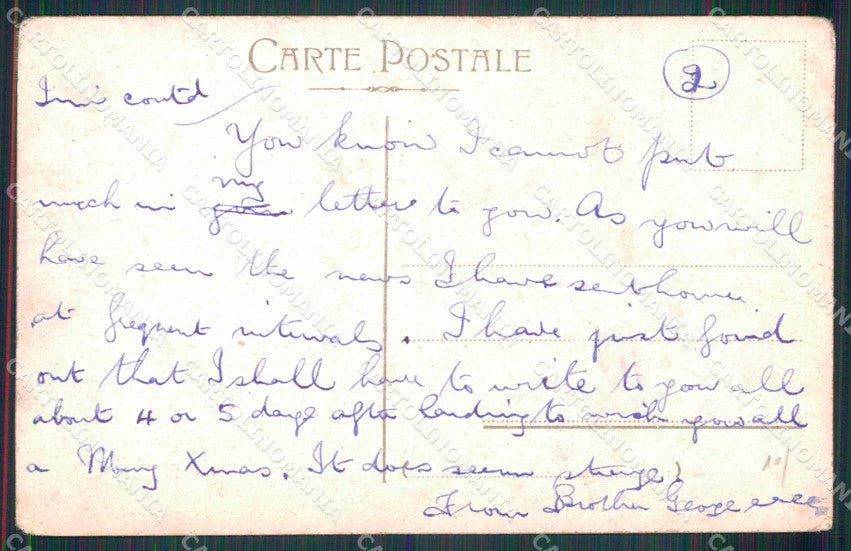 CARTE POSTALE
2
contd
You know I cannot put
much in my letters to you. As you will
have seen the news I have sent home
at frequent intervals. I have just found
out that I shall have to write to you all
about 4 or 5 days after landing to wish you all
a Merry Xmas. It does seem strange!
From Brother George
10/
CARTOLINOMANIA